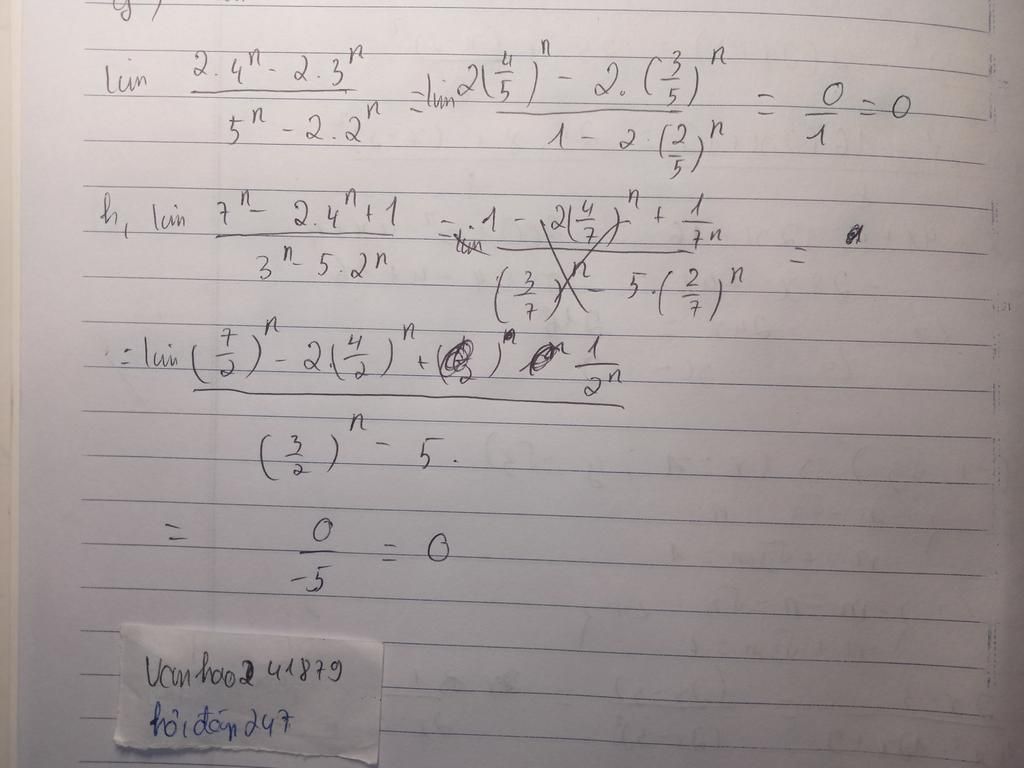 lim (2.4^n - 2.3^n)/(5^n - 2.2^n) = lim (2(4/5)^n - 2.(3/5)^n)/(1 - 2.(2/5)^n) = 0/1 = 0
h, lim (7^n - 2.4^n + 1)/(3^n - 5.2^n) = lim (1 - 2(4/7)^n + 1/7^n)/((3/7)^n - 5.(2/7)^n) =
= lim ((7/2)^n - 2.(4/2)^n + 1/2^n)/((3/2)^n - 5.
= 0/-5 = 0
Vanhao241879
hỏi đáp 247